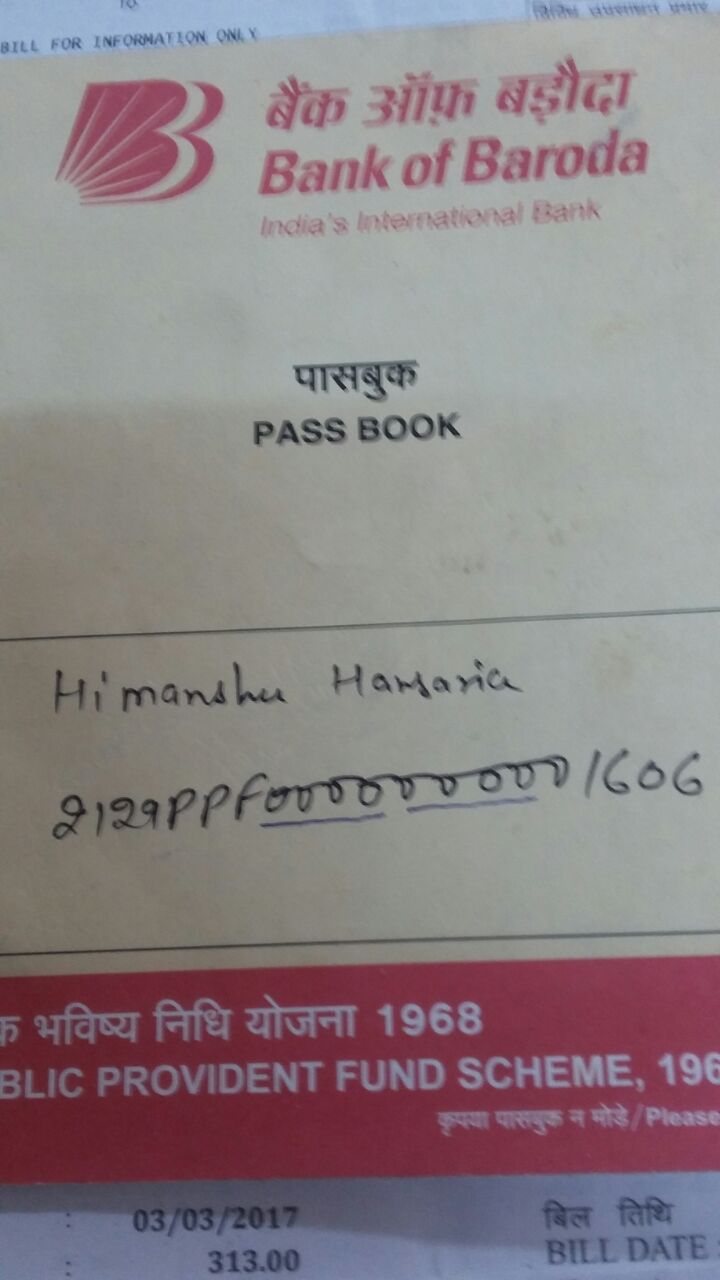 BILL FOR INFORMATION ONLY
बैंक ऑफ़ बड़ौदा
Bank of Baroda
India's International Bank
पासबुक
PASS BOOK
Himanshu Hansaria
भविष्य निधि योजना 1968
BLIC PROVIDENT FUND SCHEME, 196
कृपया पासबुक न मोडे/Please
: 03/03/2017 बिल तिथि
: 313.00 BILL DATE